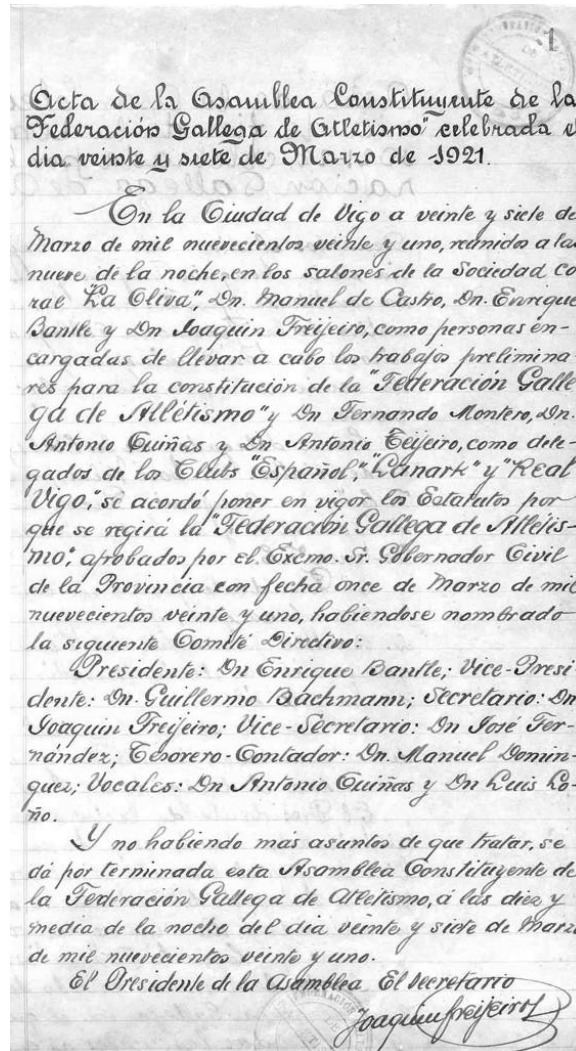 1
Acta de la Asamblea Constituyente de la
"Federación Gallega de Atletismo" celebrada el
dia veinte y siete de Marzo de 1921.
En la Ciudad de Vigo a veinte y siete de
Marzo de mil nuevecientos veinte y uno, reunidos a las
nueve de la noche, en los salones de la Sociedad Co
ral "La Oliva", Dn. Manuel de Castro, Dn. Enrique
Bantle y Dn Joaquin Freijeiro, como personas en-
cargadas de llevar a cabo los trabajos prelimina
res para la constitución de la "Federación Galle
ga de Atlétismo" y Dn Fernando Montero, Dn.
Antonio Guiñas y Dn Antonio Teijeiro, como dele-
gados de los Clubs "Español", "Lanark" y "Real
Vigo," se acordó poner en vigor los Estatutos por
que se regirá la "Federación Gallega de Atlétis-
mo", aprobados por el Excmo. Sr. Gobernador Civil
de la Provincia con fecha once de Marzo de mil
nuevecientos veinte y uno, habiendose nombrado
la siguiente Comité Directivo:
Presidente: Dn Enrique Bantle; Vice-Presi
dente: Dn. Guillermo Bachmann; Secretario: Dn
Joaquin Freijeiro; Vice-Secretario: Dn José Fer-
nández; Tesorero-Contador: Dn. Manuel Domin-
guez; Vocales: Dn Antonio Guiñas y Dn Luis Lo-
ño.
Y no habiendo más asuntos de que tratar, se
dá por terminada esta Asamblea Constituyente de
la Federación Gallega de Atletismo, á las diez y
media de la noche del dia veinte y siete de Marzo
de mil nuevecientos veinte y uno.
El Presidente de la Asamblea El Secretario
Joaquin Freijeiro